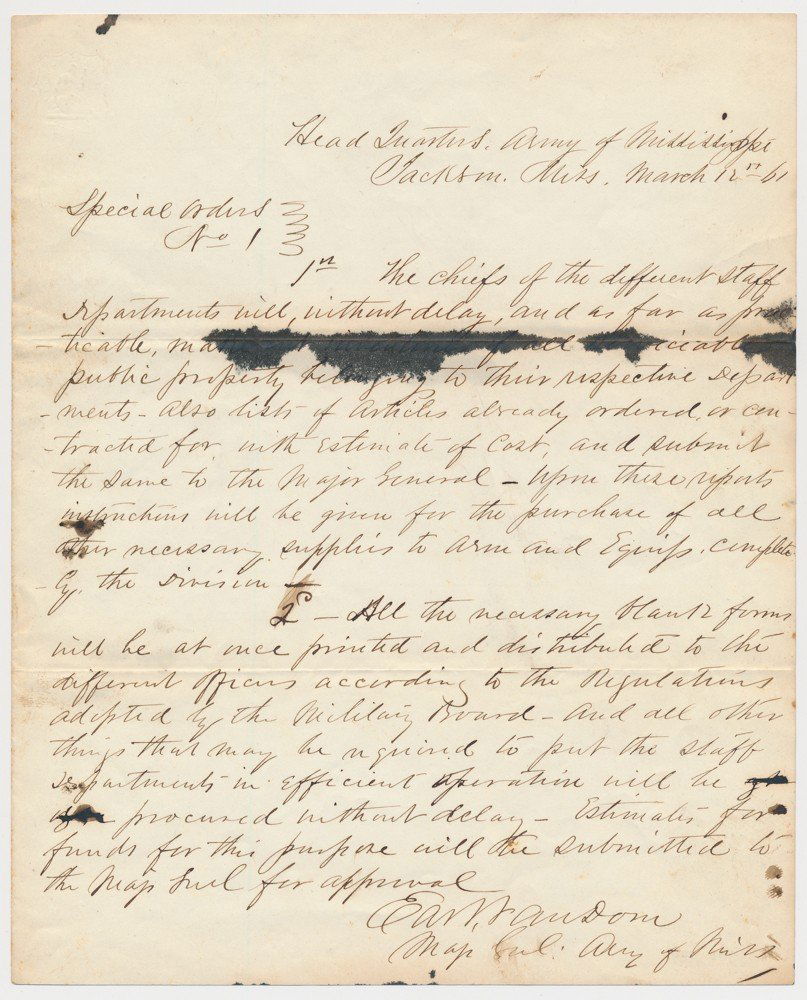 Head Quarters. Army of Mississippi
Jackson. Miss. March 12th 61
Special Orders
No 1
1st The chiefs of the different staff
Departments will, without delay, and as far as prac
-ticable, of all
public property belonging to their respective Depart
-ments - also lists of articles already ordered, or con-
-tracted for, with estimate of cost, and submit
the same to the Major General - Upon these reports
instructions will be given for the purchase of all
other necessary supplies to arm and equip. complete
-ly, the Division -
2d - All the necessary blank forms
will be at once printed and distributed to the
different officers according to the Regulations
adopted by the Military Board - And all other
things that may be required to put the staff
Departments in efficient operation will be
procured without delay - Estimates for
funds for this purpose will be submitted to
the Maj Genl for approval
Earl Van Dorn
Maj Genl: Army of Miss